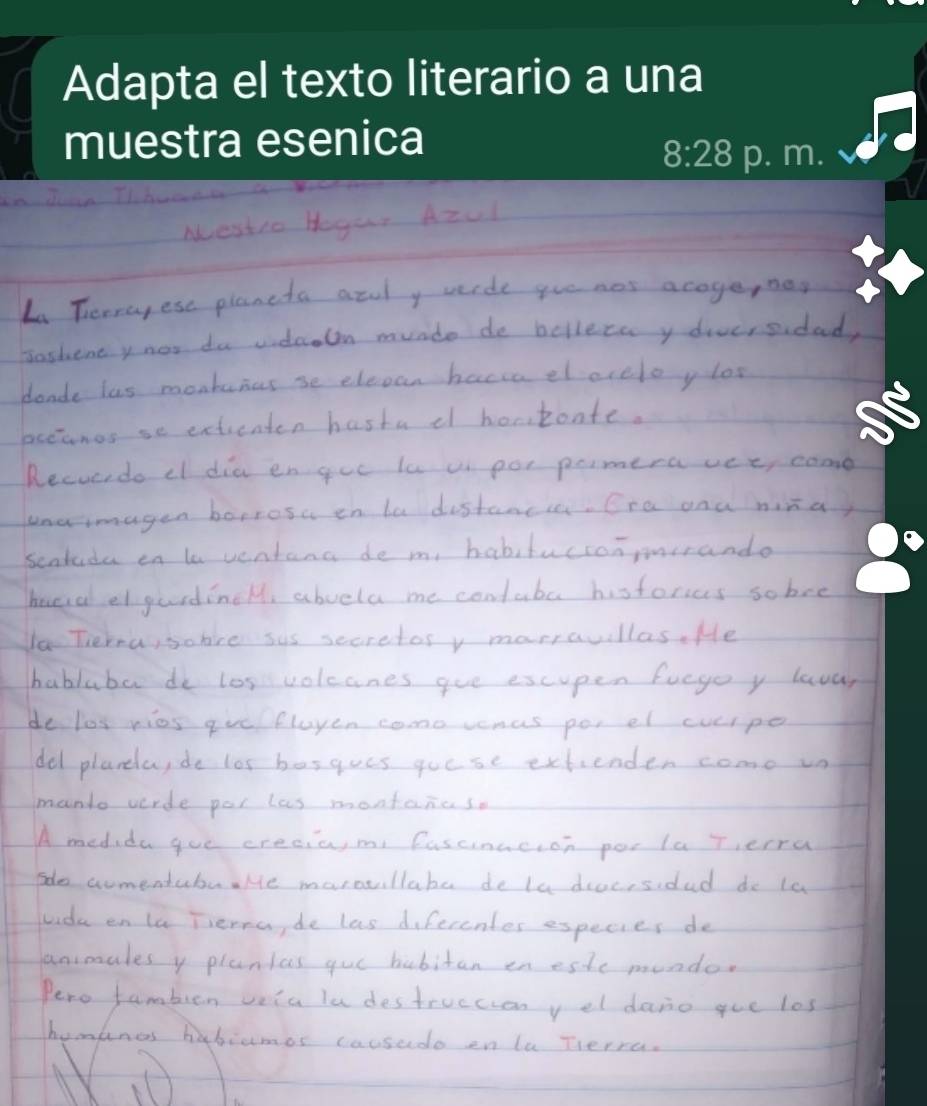 Adapta el texto literario a una
muestra esenica
8:28 p. m.
Nuestro Hogar Azul
La Tierra, ese planeta azul y verde que nos acoge, nos
sostiene y nos da vida. Un mundo de belleza y diversidad,
donde las montañas se elevan hacia el cielo y los
océanos se extienten hasta el horizonte.
Recuerdo el día en que la vi por primera vez, como
una imagen borrosa en la distancia. Era una niña,
sentada en la ventana de mi habitución, mirando
hacia el jardín. Mi abuela me contaba historias sobre
la Tierra, sobre sus secretos y marravillas. Me
hablaba de los volcanes que escupen fuego y lava,
de los ríos que fluyen como venas por el cuerpo
del planeta, de los bosques que se extienden como un
manto verde por las montañas.
A medida que crecía, mi fascinación por la Tierra
solo aumentaba. Me maravillaba de la diversidad de la
vida en la Tierra, de las diferentes especies de
animales y plantas que habitan en este mundo.
Pero tambien veía la destruccion y el daño que los
humanos habiamos causado en la Tierra.